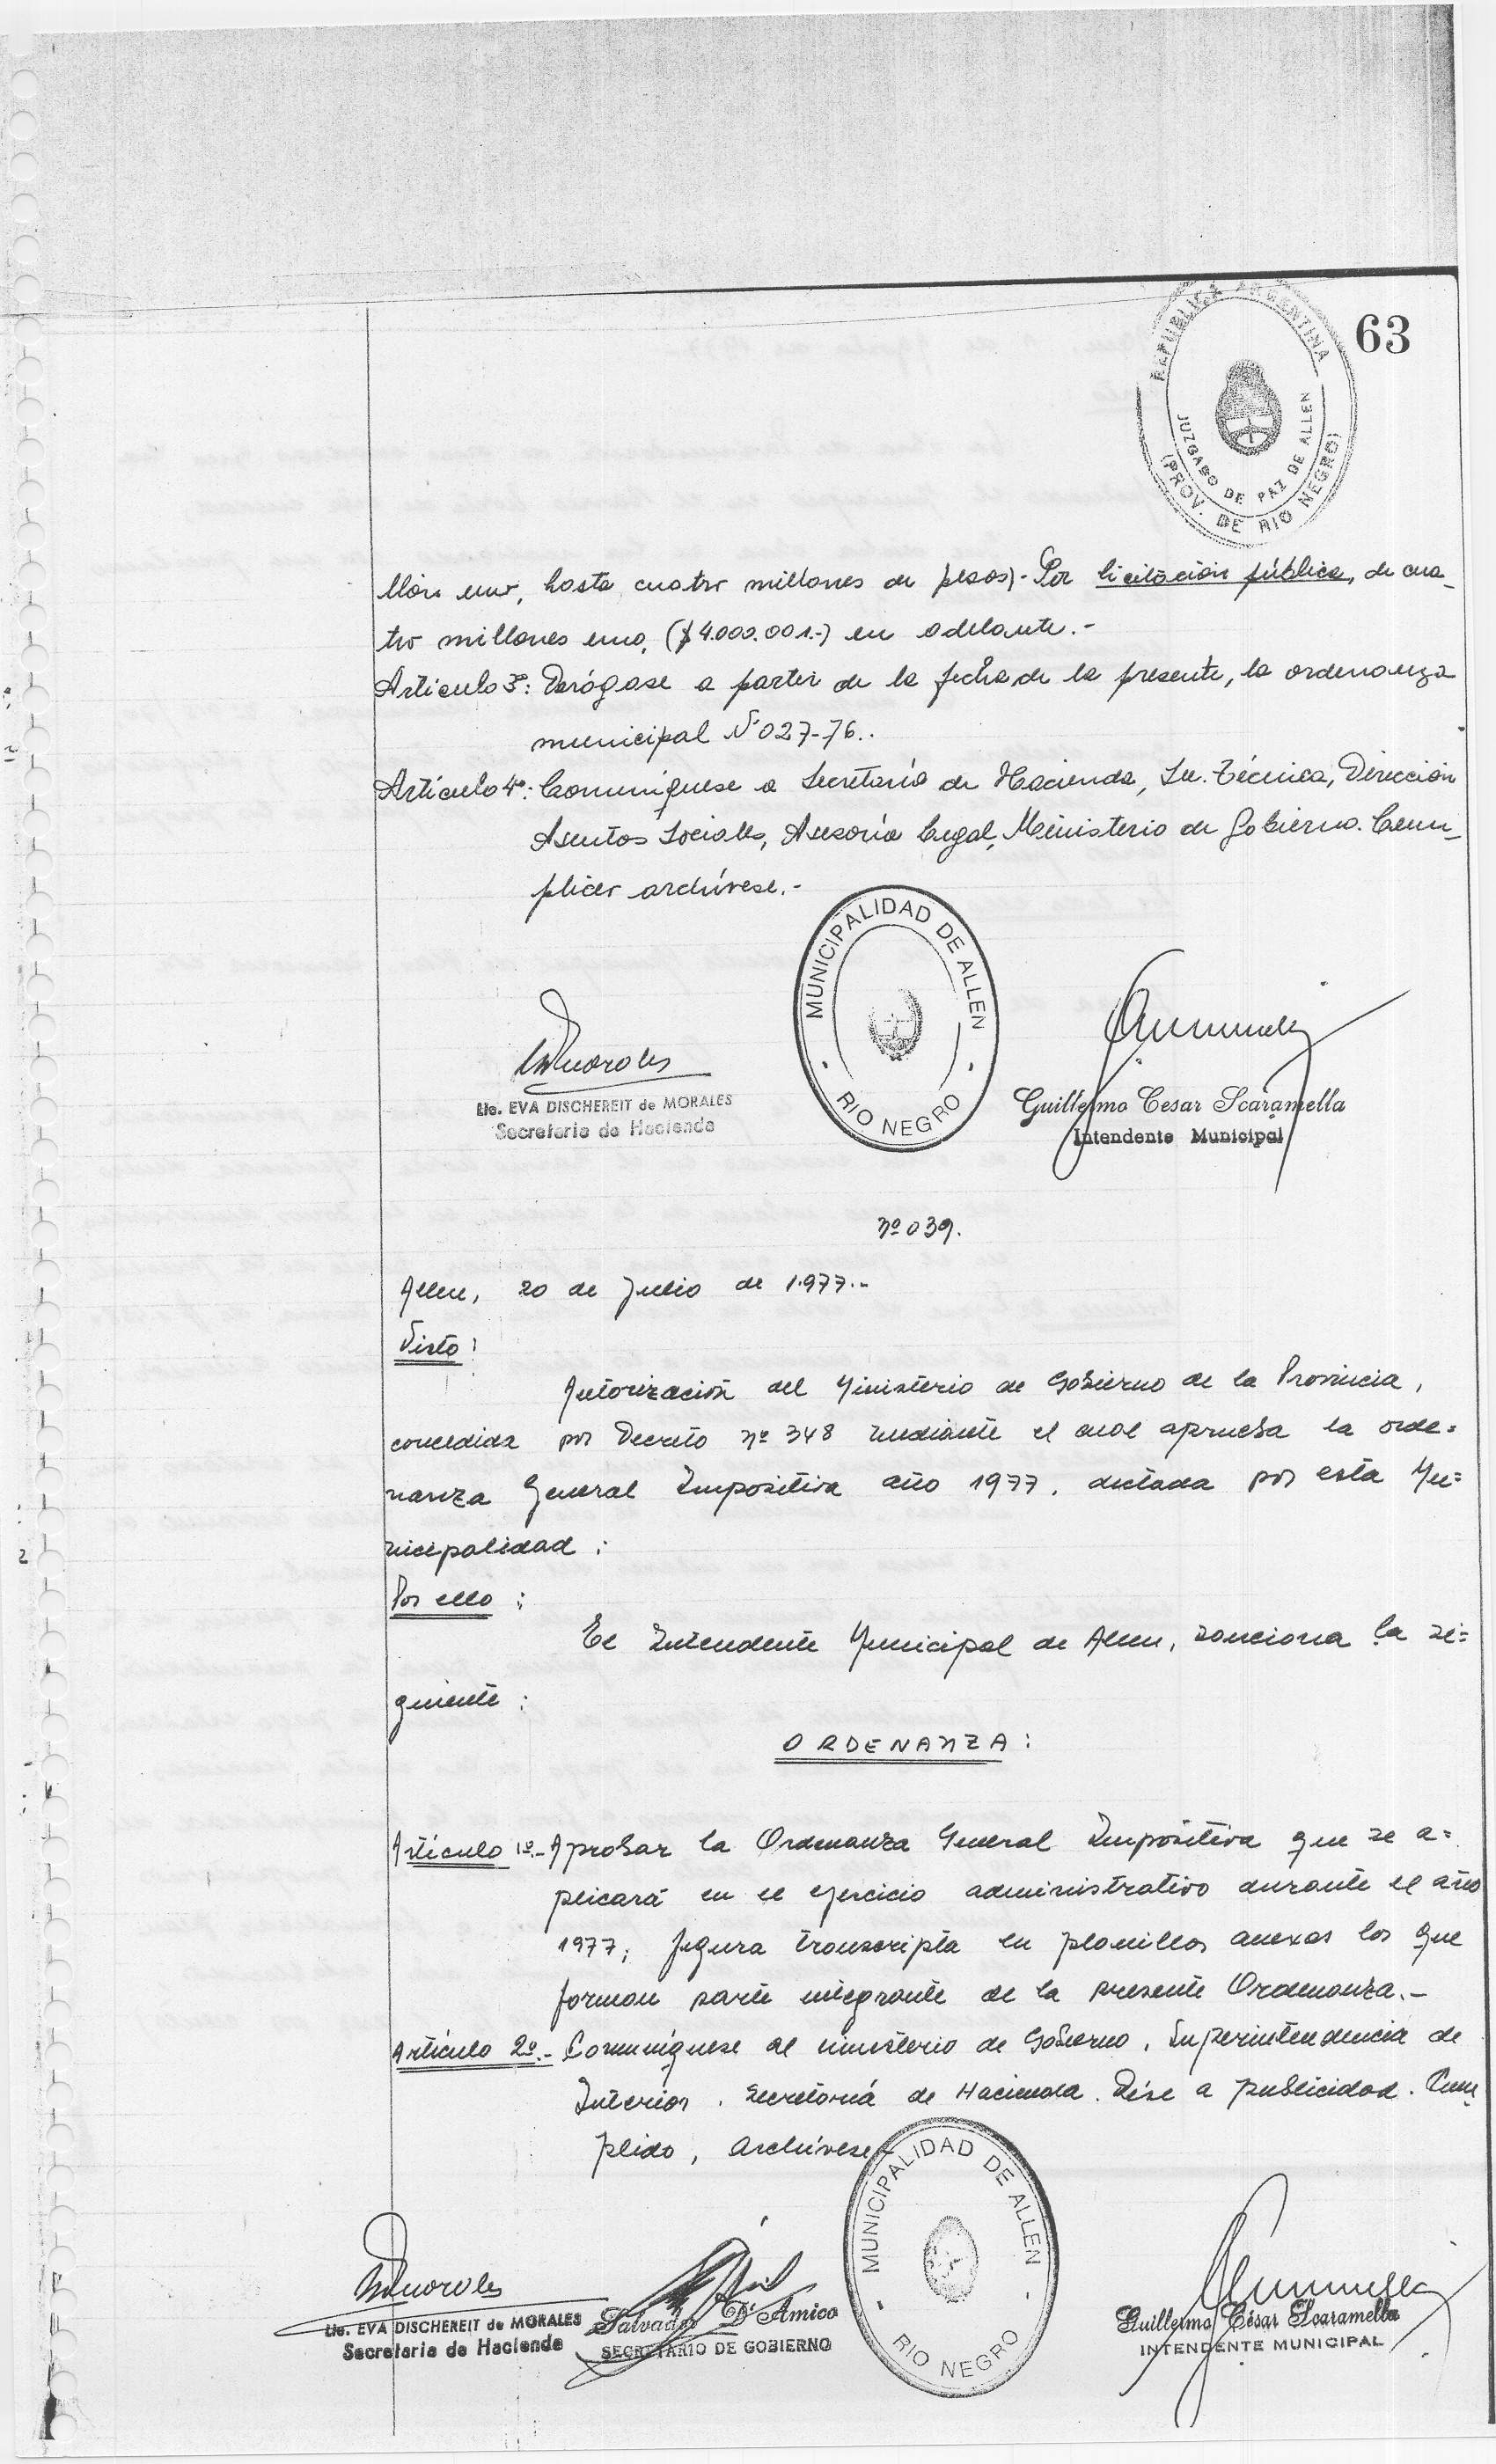 63
REPUBLICA ARGENTINA
JUZGADO DE PAZ DE ALLEN
(PROV. DE RIO NEGRO)
llón uno, hasta cuatro millones de pesos)- Por licitación pública, de cua_
tro millones uno, ($4.000.001.-) en adelante.-
Artículo 3º: Derógase a partir de la fecha de la presente, la ordenanza
municipal Nº 027-76..
Artículo 4º: Comuníquese a Secretaría de Hacienda, Sec. Técnica, Dirección
Asuntos Sociales, Asesoría Legal, Ministerio de Gobierno. Cum_
plido archívese.-
MUNICIPALIDAD DE ALLEN
RIO NEGRO
Lic. EVA DISCHEREIT de MORALES
Secretaria de Hacienda
Guillermo Cesar Scaramella
Intendente Municipal
Nº 039.
Allen, 20 de Julio de 1.977.-
Visto:
Autorización del Ministerio de Gobierno de la Provincia,
concedida por Decreto Nº 348 mediante el cual aprueba la orde=
nanza General Impositiva año 1977, dictada por esta Mu=
nicipalidad;
Por ello:
El Intendente Municipal de Allen, sanciona la si=
guiente:
ORDENANZA:
Artículo 1º.- Aprobar la Ordenanza General Impositiva que se a=
plicará en el ejercicio administrativo durante el año
1977; figura transcripta en planillas anexas las que
forman parte integrante de la presente Ordenanza.-
Artículo 2º.- Comuníquese al ministerio de Gobierno, Superintendencia de
Interior, Secretaría de Hacienda. Dése a publicidad. Cum_
plido, archívese.-
MUNICIPALIDAD DE ALLEN
RIO NEGRO
Lic. EVA DISCHEREIT de MORALES
Secretaria de Hacienda
Salvador D'Amico
SECRETARIO DE GOBIERNO
Guillermo César Scaramella
INTENDENTE MUNICIPAL